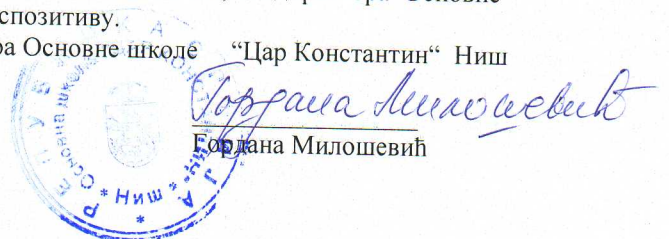 Основне
спозитиву.
ра Основне школе “Цар Константин“ Ниш
Гордана Милошевић
Гордана Милошевић
* РЕПУБЛИКА
* Основна школа
* Ниш *